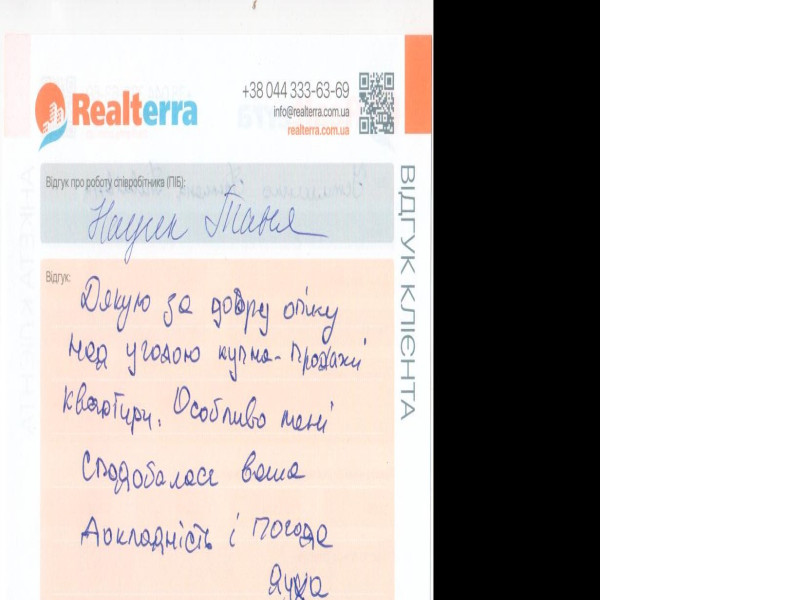 Realterra
+38 044 333-63-69
info@realterra.com.ua
realterra.com.ua
Відгук про роботу співробітника (ПІБ):
Таня
ВІДГУК КЛІЄНТА
Відгук:
Дякую за добру опіку
над угодою купна-продажи
квартири. Особливо мені
сподобалася ваша
докладність і погода
духа